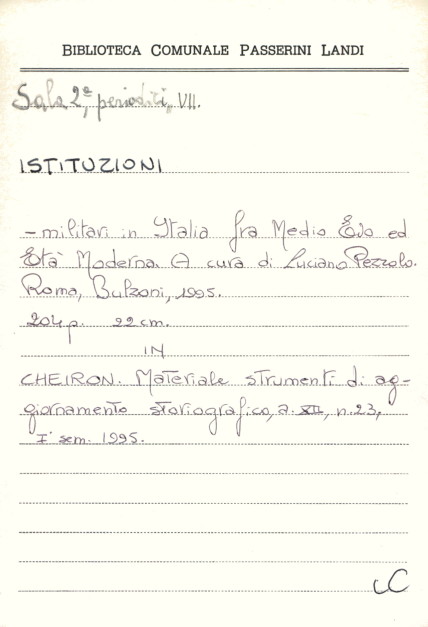 BIBLIOTECA COMUNALE PASSERINI LANDI
Sala 2ª, periodici, VII.
ISTITUZIONI
- militari in Italia fra Medio Evo ed
Età Moderna. A cura di Luciano Pezzolo.
Roma, Bulzoni, 1995.
204 p. 22 cm.
IN
CHEIRON. Materiale strumenti di ag-
giornamento storiografico, a. XII, n. 23,
I° sem. 1995.